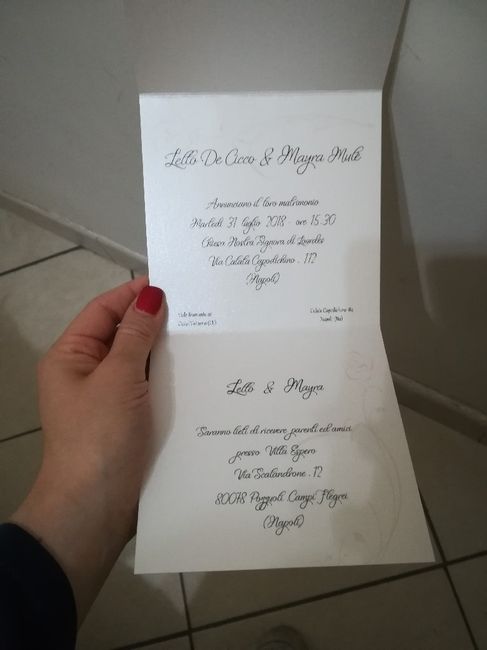 Lello De Cicco & Mayra Mulè
Annunciano il loro matrimonio
Martedì 31 luglio 2018 - ore 15:30
Chiesa Nostra Signora di Lourdes
Via Calata Capodichino , 112
(Napoli)
Calata Capodichino
Napoli (Na)
Lello & Mayra
Saranno lieti di ricevere parenti ed amici
presso Villa Espero
Via Scalandrone , 12
80078 Pozzuoli Campi Flegrei
(Napoli)